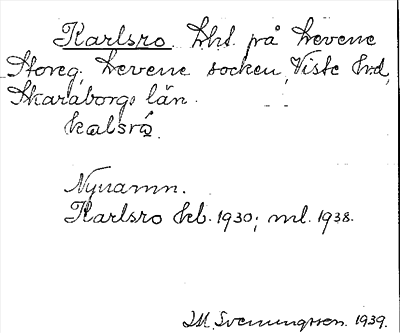 Karlsro. Lht. på Levene
Storeg, Levene socken, Viste hd,
Skaraborgs län.
kalsró.
Nynamn.
Karlsro kb. 1930; ml. 1938.
Svenningsson. 1939.